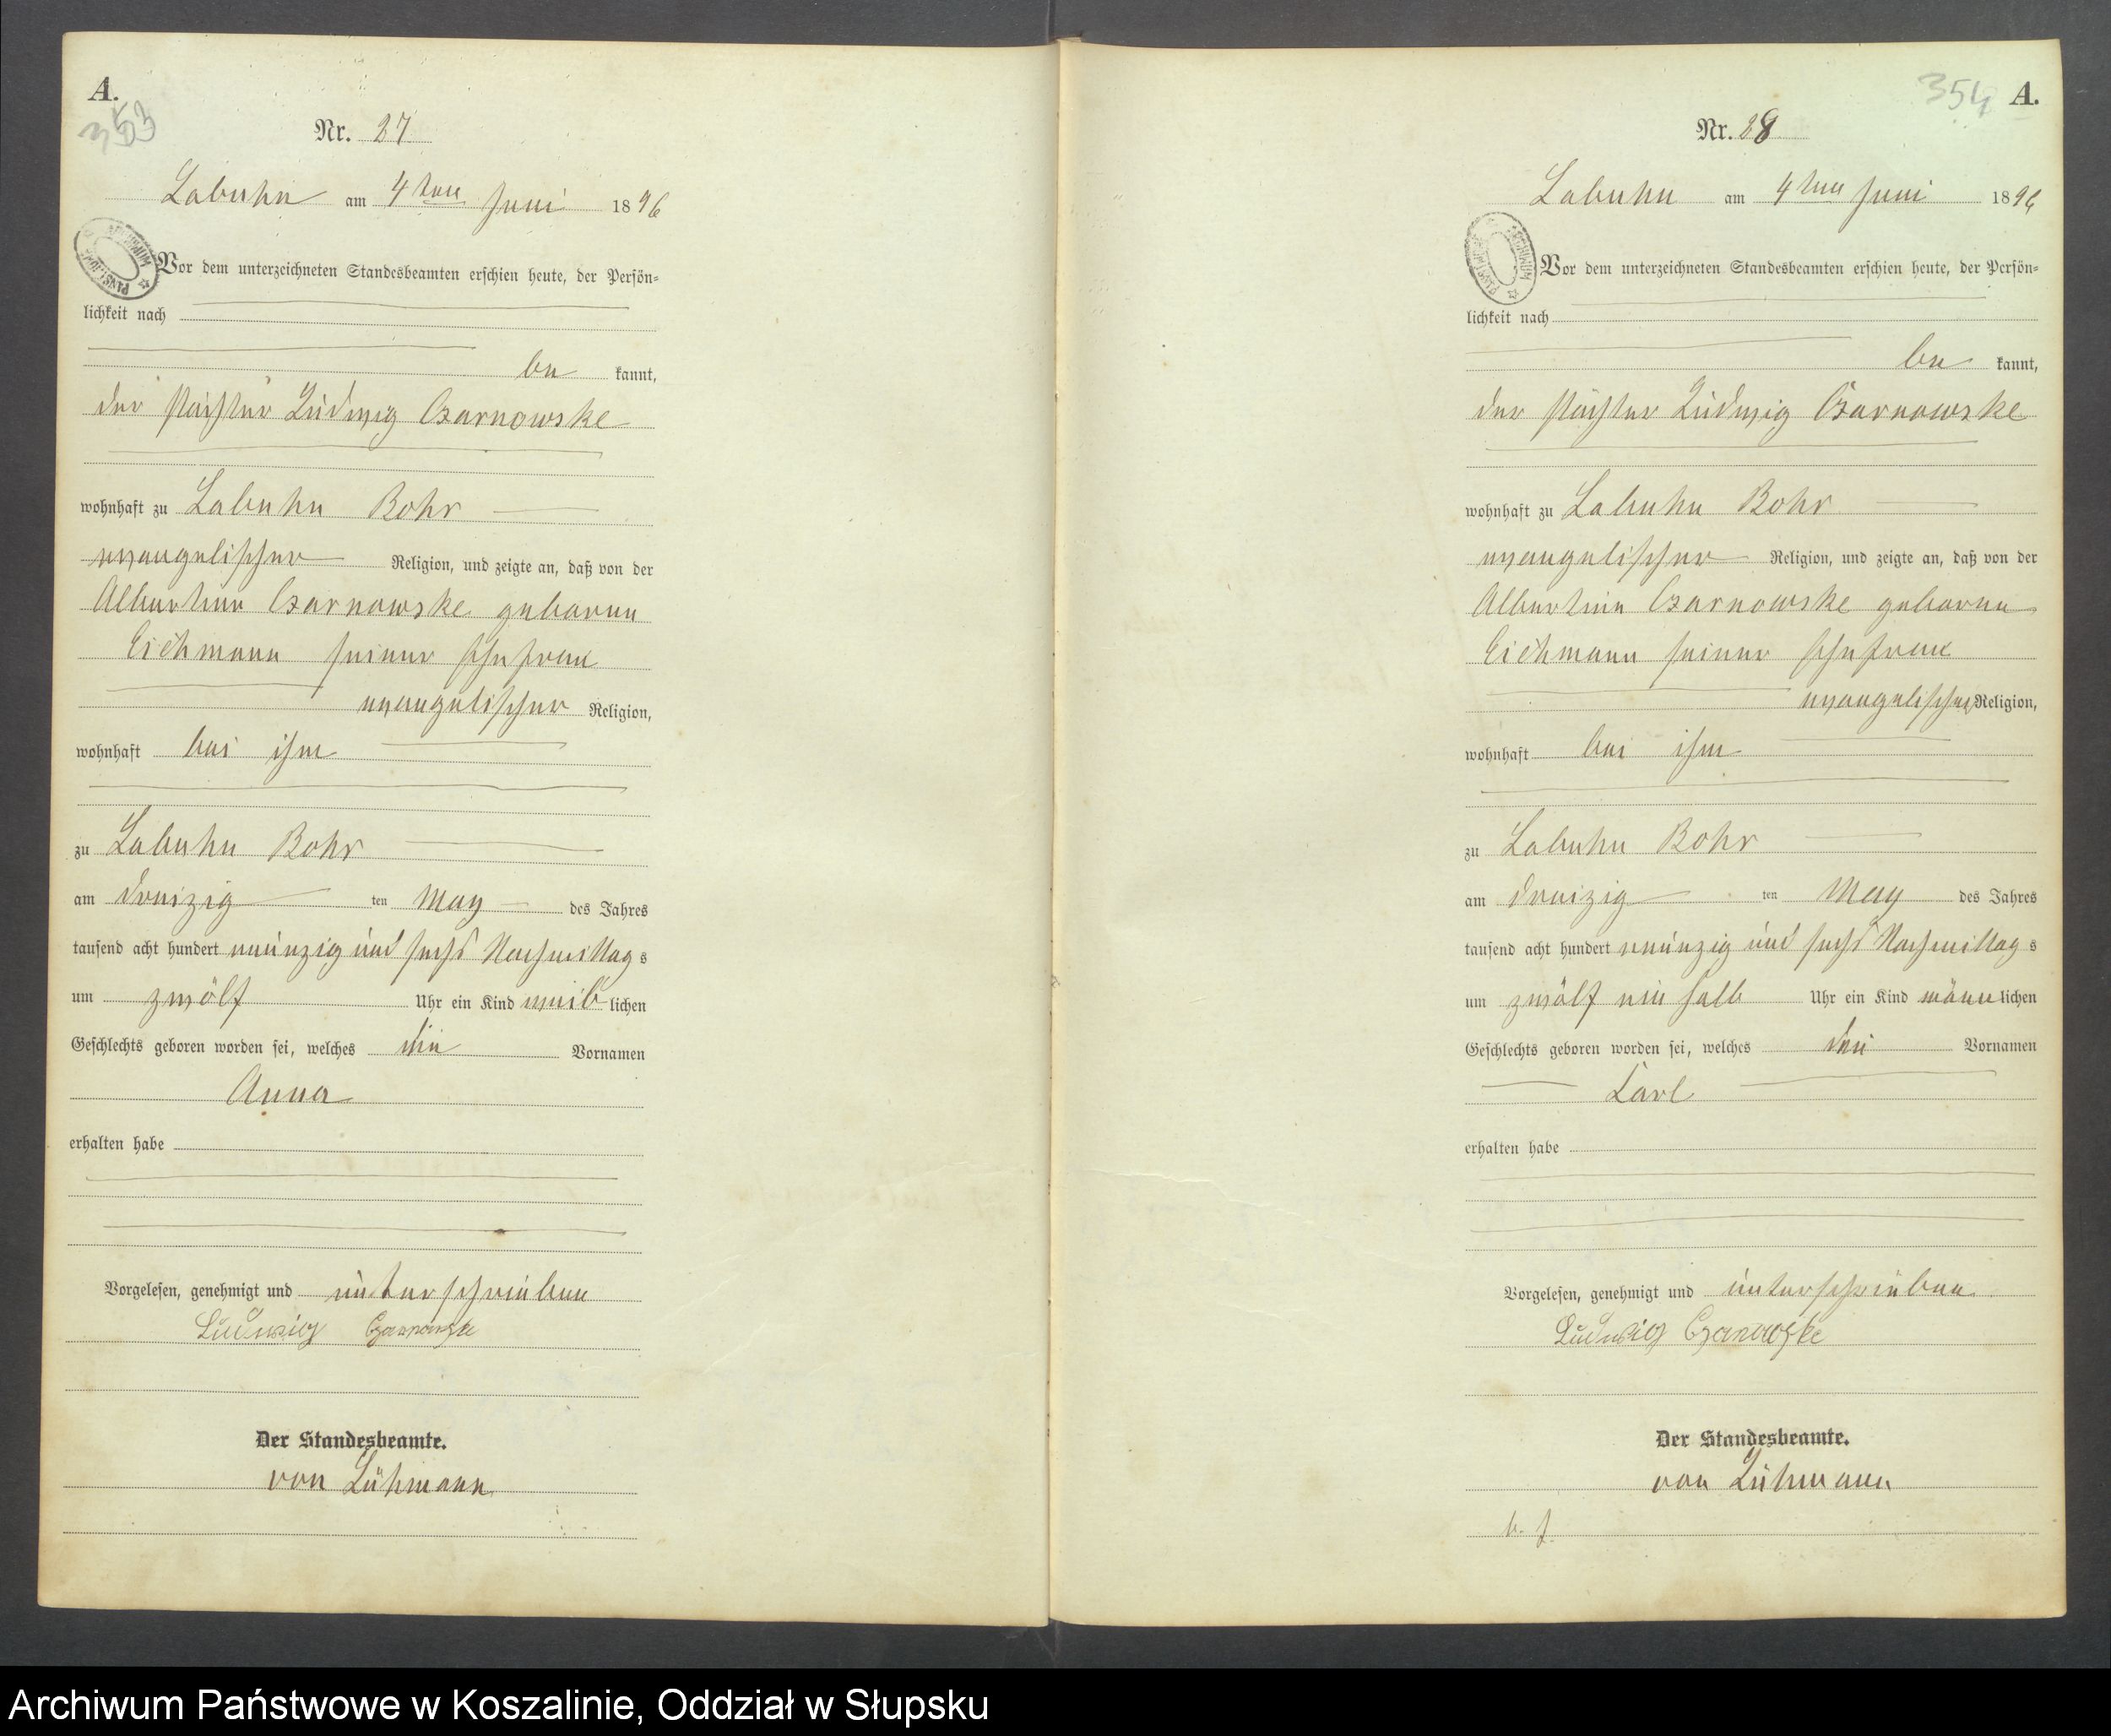 A.
353
Nr. 27
Labuhn am 4ten Juni 1896
Vor dem unterzeichneten Standesbeamten erschien heute, der Persön=
lichkeit nach
be kannt,
der Pächter Ludwig Czarnowske
wohnhaft zu Labuhn Bohr
evangelischer Religion, und zeigte an, daß von der
Albertine Czarnowske geborene
Eichmann seiner Ehefrau
evangelischer Religion,
wohnhaft bei ihm
zu Labuhn Bohr
am dreizig ten May des Jahres
tausend acht hundert neunzig und sechs Nachmittag s
um zwölf Uhr ein Kind weib lichen
Geschlechts geboren worden sei, welches Vornamen
Anna
erhalten habe
Vorgelesen, genehmigt und unterschrieben
Ludwig Czarnowske
Der Standesbeamte.
von Lühmann
354 A.
Nr. 28
Labuhn am 4ten Juni 1896
Vor dem unterzeichneten Standesbeamten erschien heute, der Persön=
lichkeit nach
be kannt,
der Pächter Ludwig Czarnowske
wohnhaft zu Labuhn Bohr
evangelischer Religion, und zeigte an, daß von der
Albertine Czarnowske geborene
Eichmann seiner Ehefrau
evangelischer Religion,
wohnhaft bei ihm
zu Labuhn Bohr
am dreizig ten May des Jahres
tausend acht hundert neunzig und sechs Nachmittag s
um zwölf ein halb Uhr ein Kind männ lichen
Geschlechts geboren worden sei, welches den Vornamen
Carl
erhalten habe
Vorgelesen, genehmigt und unterschrieben
Ludwig Czarnowske
Der Standesbeamte.
von Lühmann
Archiwum Państwowe w Koszalinie, Oddział w Słupsku